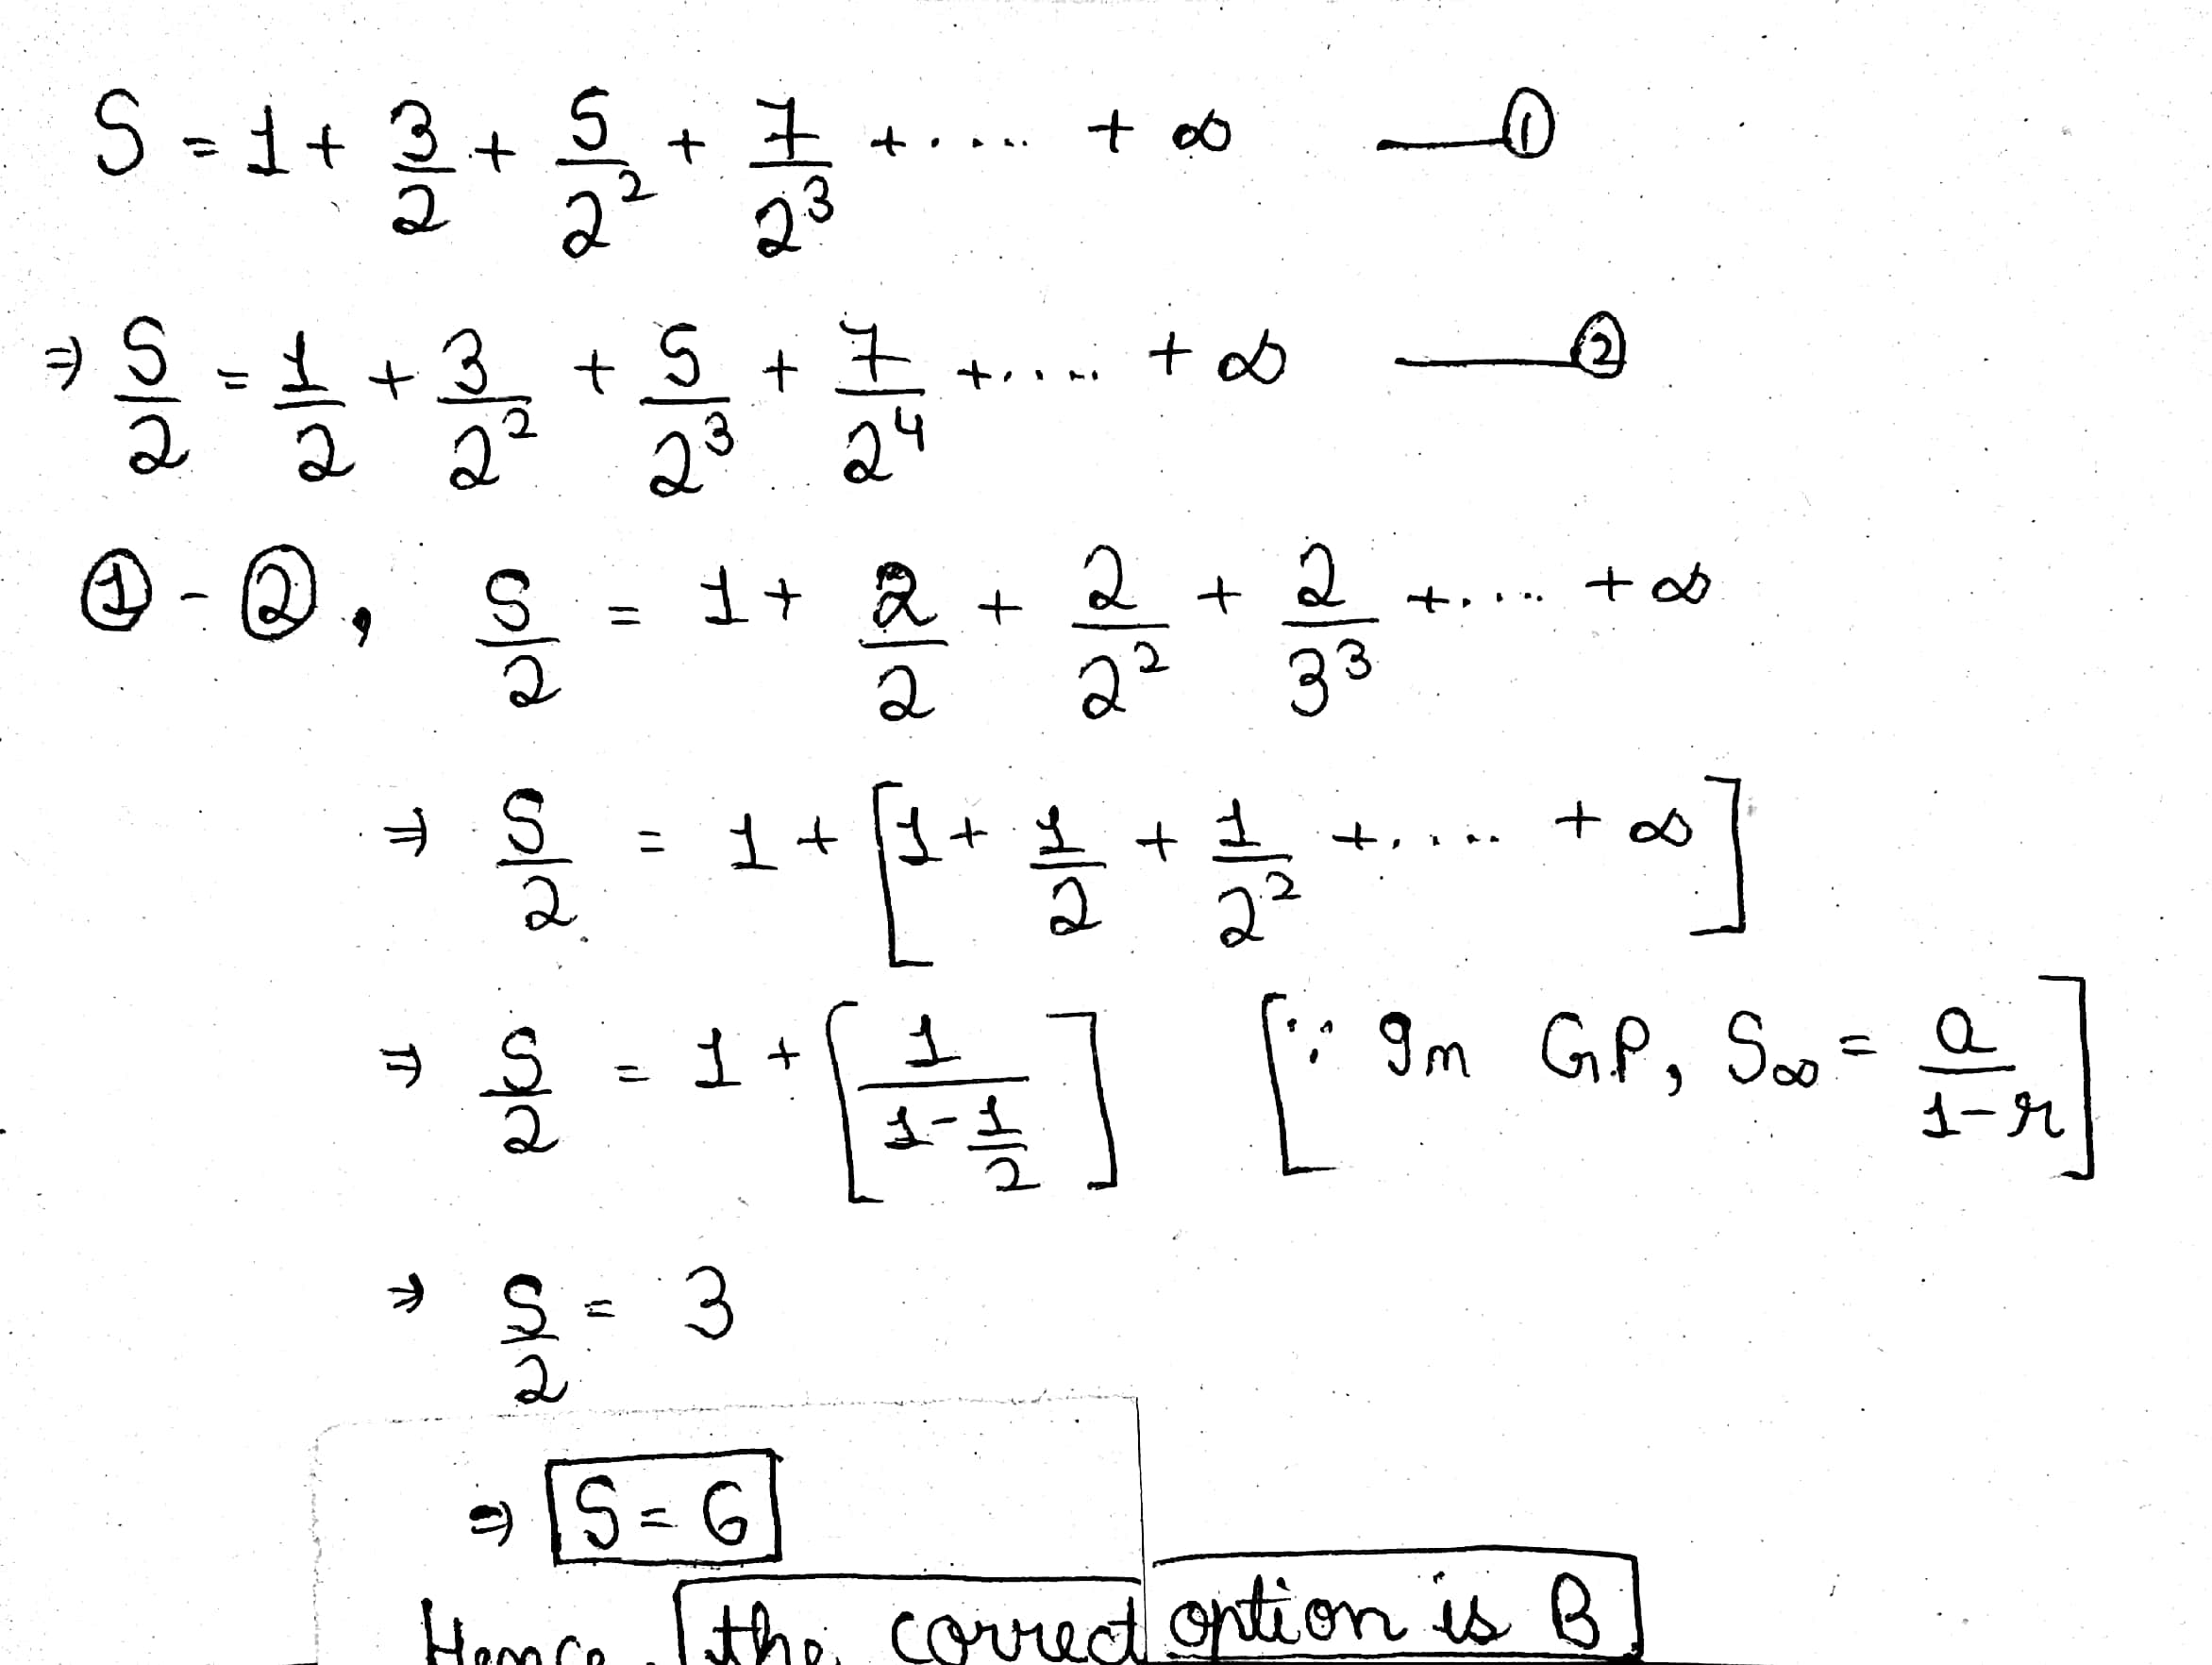 S = 1 + 3/2 + 5/2² + 7/2³ + ..... + ∞ —①
⇒ S/2 = 1/2 + 3/2² + 5/2³ + 7/2⁴ + ..... + ∞ —②
① - ②, S/2 = 1 + 2/2 + 2/2² + 2/3³ + ..... + ∞
⇒ S/2 = 1 + [1 + 1/2 + 1/2² + ..... + ∞]
⇒ S/2 = 1 + [1/(1 - 1/2)] [∵ In GP, S∞ = a/(1-r)]
⇒ S/2 = 3
⇒ S = 6
Hence, the correct option is B